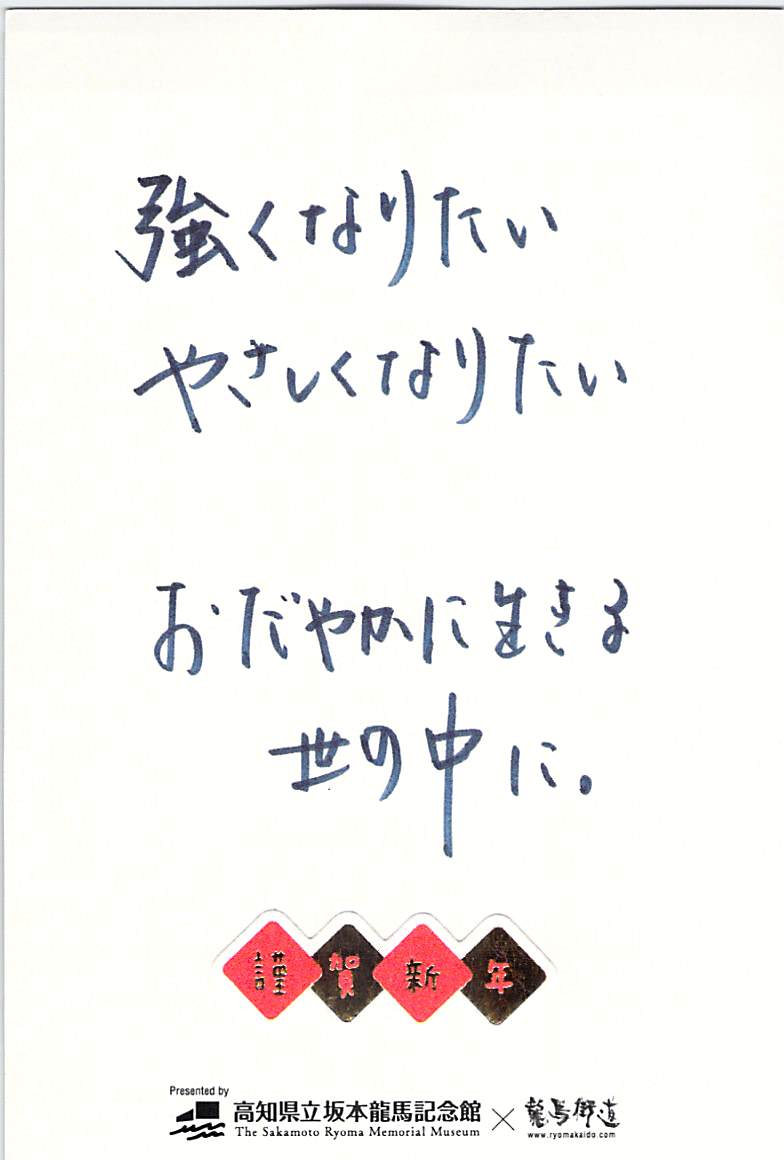 強くなりたい
やさしくなりたい
おだやかに生きる
世の中に。
謹賀新年
Presented by
高知県立坂本龍馬記念館 × 龍馬街道
The Sakamoto Ryoma Memorial Museum
www.ryomakaido.com